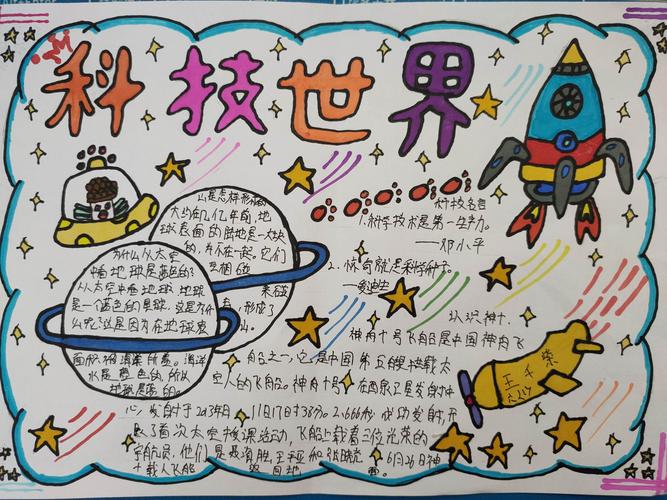 科技世界
山是怎样形成的
大约在几亿年前,地
球表面的陆地是一大块
的,
它们
互相
来碰
形成了
山。
为什么从太空
中看地球是蓝色的?
从太空中看地球,地球
是一个蓝色的星球。这是为什
么呢?这是因为在地球表
面
海洋
水是蓝色的,所以
地球是蓝的。
科技名言
1.科学技术是第一生产力。
——邓小平
2.怀疑就是科学种子。
认识神十
神舟十号飞船是中国神舟飞
船之一,它是中国第五艘载太
空人的飞船。神舟十号,在酒泉卫星发射中
心发射于2013年6月11日17日38分2.666秒成功发射,开
了首次太空授课活动,飞船上载着三位光荣的
宇航员,他们是聂海胜,王亚平和张晓光。6月26日神
十载人飞船返回地
王